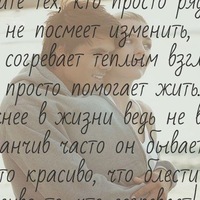 ите тех, кто просто ряд
не посмеет изменить,
согревает теплым взгл
просто помогает жить.
нее в жизни ведь не в
анчив часто он бывает
то красиво, что блести